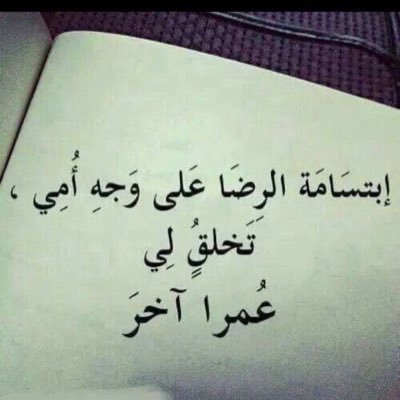 إبتسَامَة الرِضَا عَلى وَجهِ أُمِي ،
تَخلقُ لِي
عُمرا آخرَ